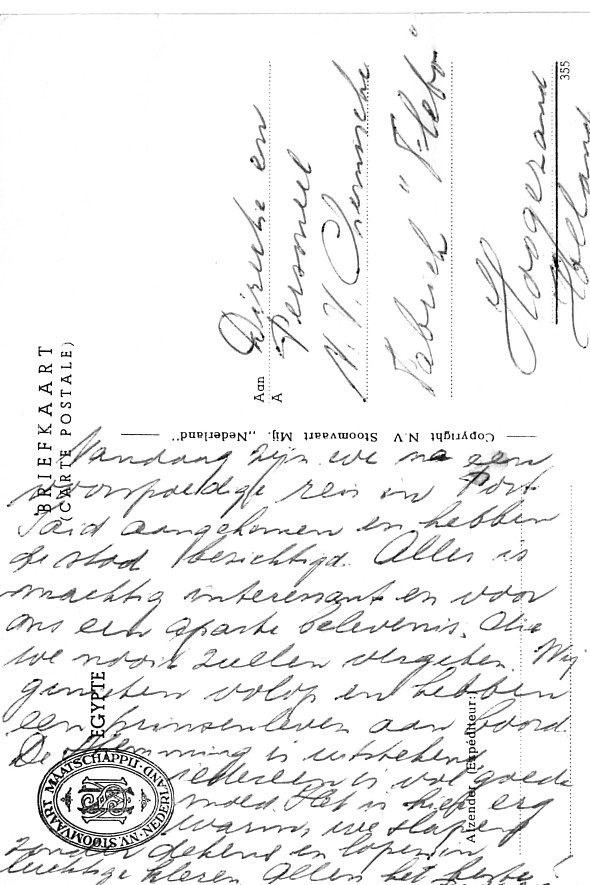 BRIEFKAART
(CARTE POSTALE)
Aan
A
Directie en
Personeel
N.V. Chemische
Fabriek "Flebo"
Hoogezand
Holland
355
Copyright N.V. Stoomvaart Mij. „Nederland"
Vandaag zijn we na een
voorspoedige reis in Port
Said aangekomen en hebben
de stad bezichtigd. Alles is
machtig interessant en voor
ons een aparte belevenis, die
we nooit zullen vergeten. Wij
genieten volop en hebben
een prinsenleven aan boord.
De stemming is uitstekend,
iedereen is vol goede
moed. Het is hier erg
warm, we slapen
zonder dekens en lopen in
luchtige kleren. Allen het beste!
EGYPTE
STOOMVAART MAATSCHAPPIJ NEDERLAND
Afzender (Expéditeur:)